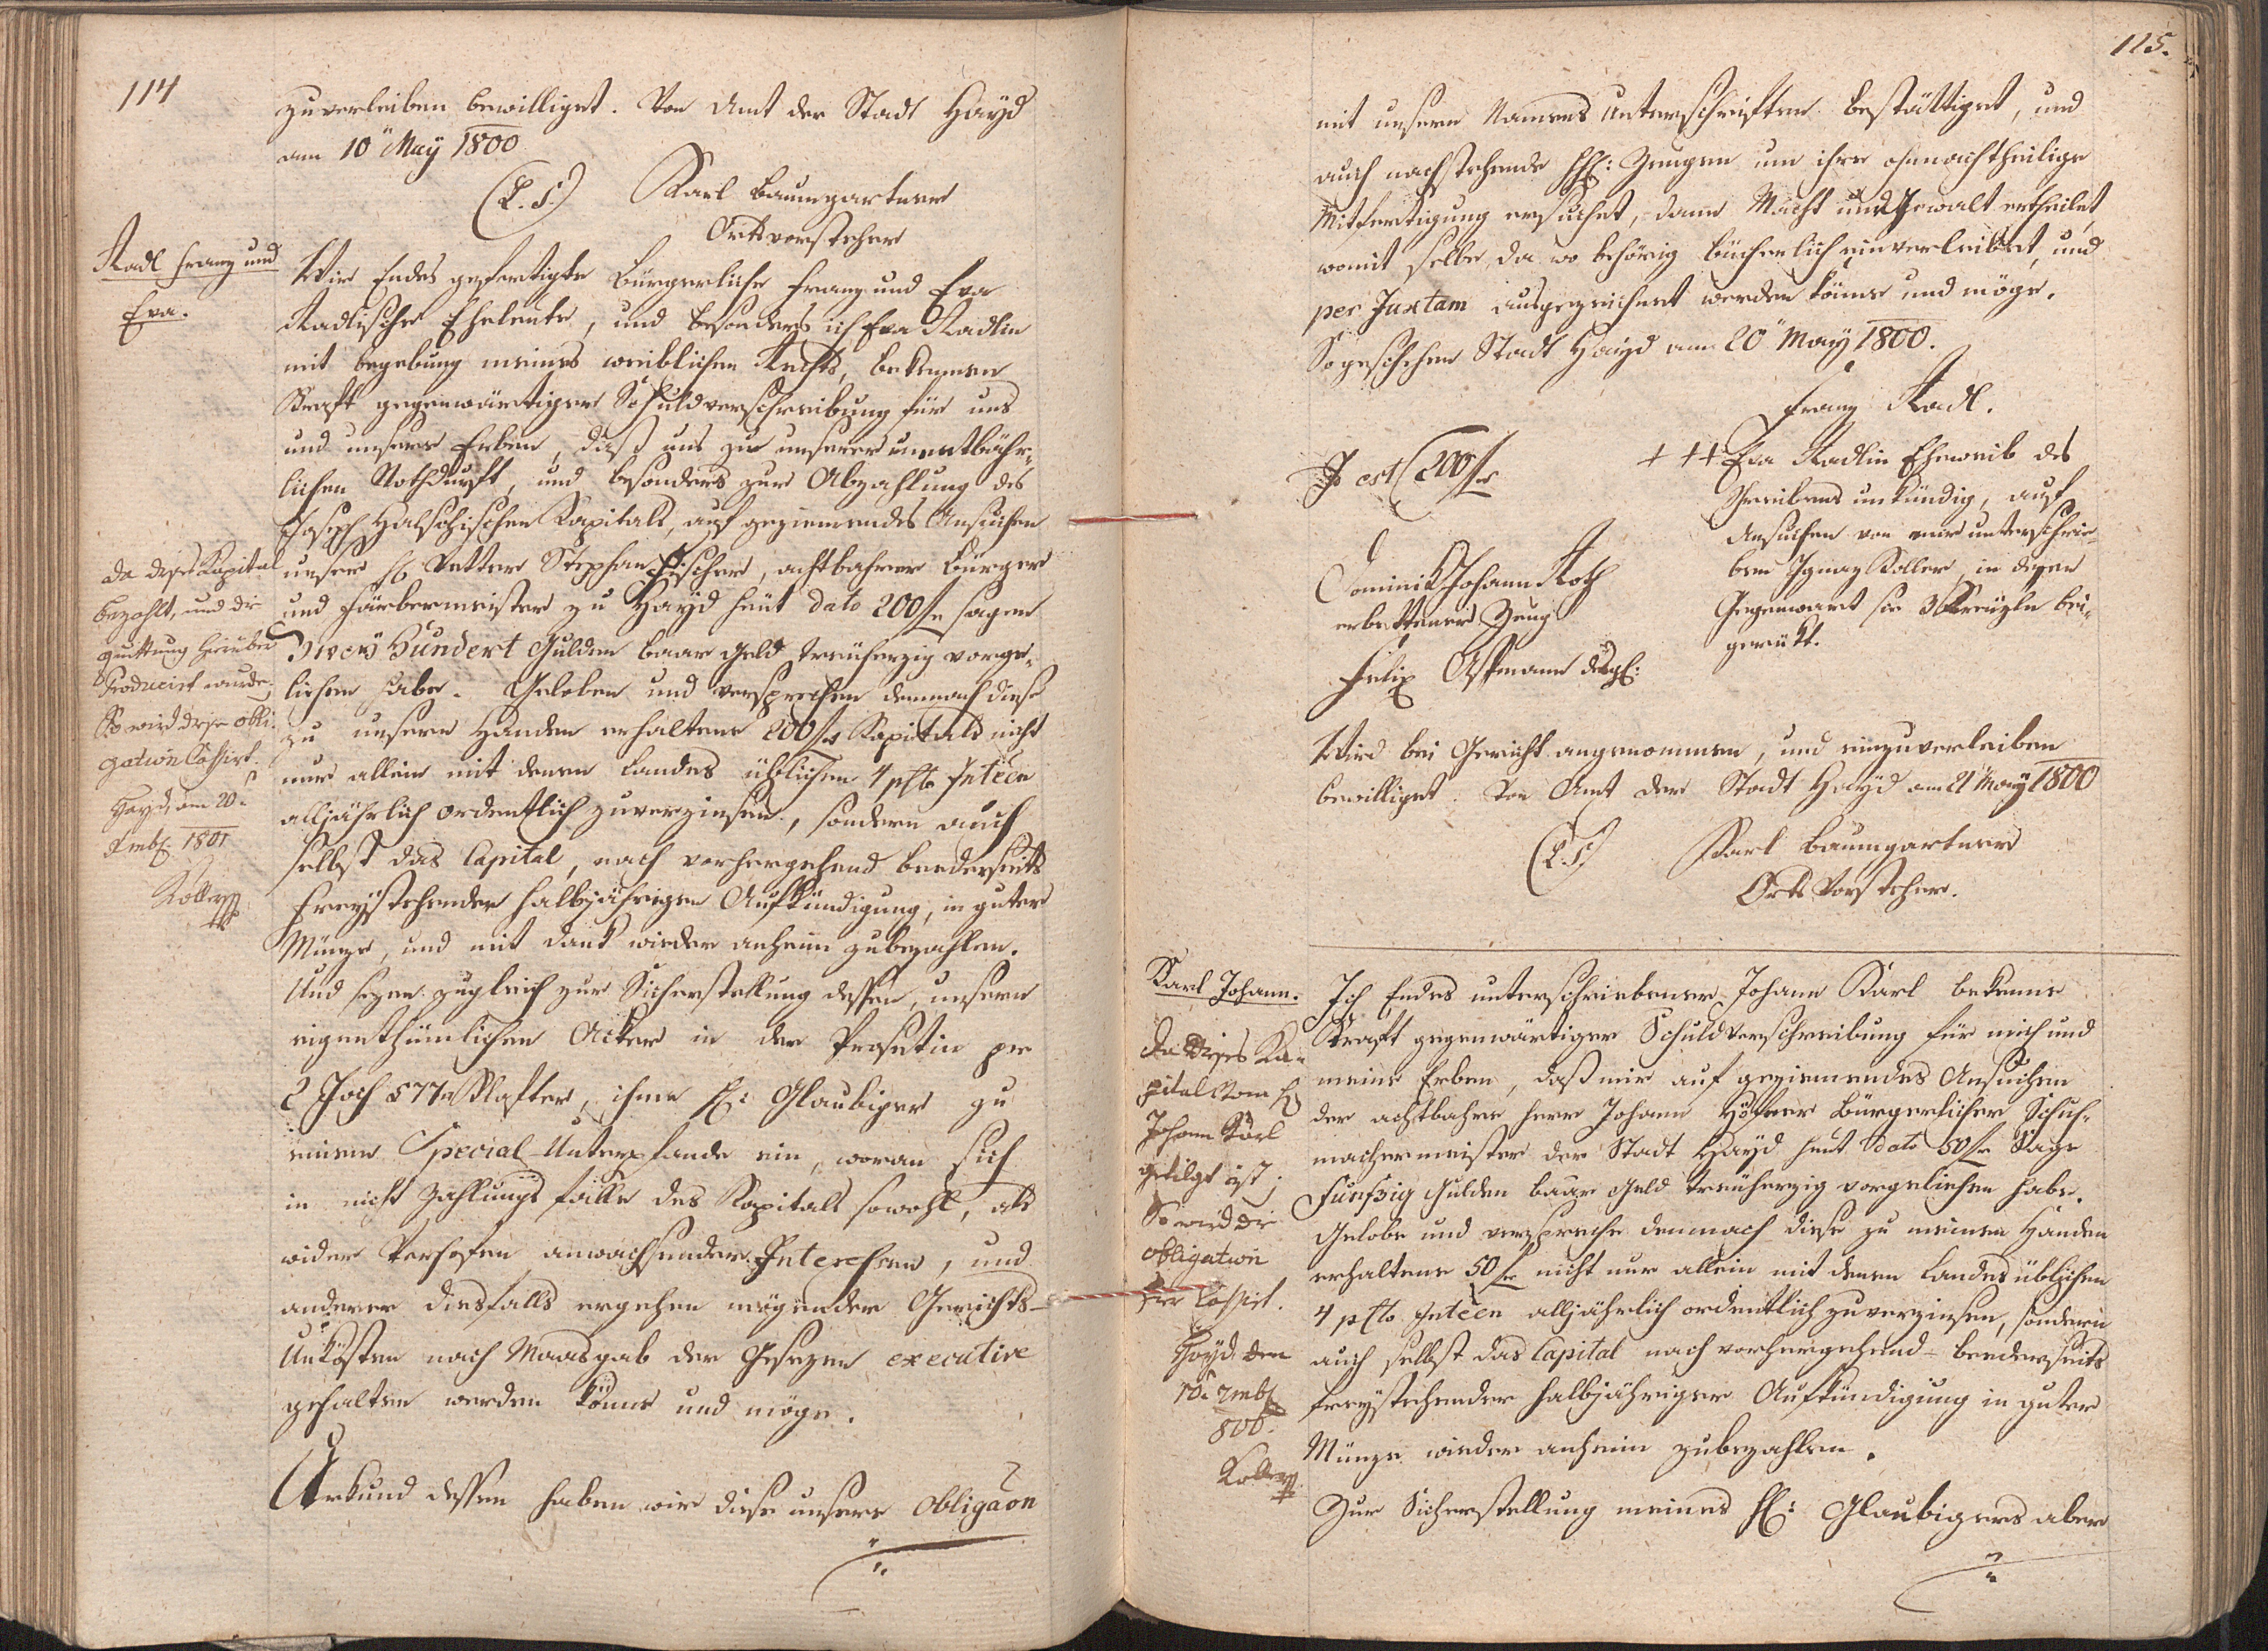 114
zuverleiben bewilliget. Von Amt der Stadt Hayd
am 10" May 1800
(L. S.) Karl Baumgartner
Ortsvorsteher
Radl Franz und
Eva.
Wir Endes gefertigte Bürgerliche Franz und Eva
Radlische Eheleute, und besonders ich Eva Radlin
mit begebung meines weiblichen Rechts, bekennen
Kraft gegenwärtiger Schuldverschreibung für uns
und unsere Erben, daß uns zu unserer unentbähr,
lichen Nothdurft, und besonders zur Abzahlung des
Joseph Halschischen Kapitals, auf geziemendes Ansuchen
unser H. Vetter Stephan Fischer, achtbahrer Bürger
und Färbermeister zu Hayd heut dato 200 fr sagen
Zwey Hundert Gulden baar Geld treuherzig vorge,
liehen habe. Geloben und versprechen demnach diese
zu unsern Handen erhaltene 200 fr Kapitals nicht
nur allein mit denen Landes üblichen 4 pCto Inteèen
alljährlich ordentlich zuverzinsen, sondern auch
selbst das Capital, nach vorhergehend beederseits
freystehender halbjährigen Aufkündigung, in guter
Münze, und mit Dank wieder anheim zubezahlen.
Und sezen zugleich zur Sicherstellung dessen, unsern
eigenthümlichen Acker in der Prosetin pr
2 Joch 577 Klafter, ihme H: Glaubiger zu
einem Special-Unterpfande ein, woran sich
in nicht Zahlungs falle des Kapitals sowohl, als
wider Verhofen anwachsender Interessen, und
anderer diesfalls ergehen mögender Gerichts-
Unkösten nach Maasgab der Gesezen executive
gehalten werden könne und möge.
Urkund dessen haben wir diese unsere Obligaõn
Da dieses Kapital
bezahlt, und die
quittung hierüber
Producirt wurde;
So wird diese Obli-
gation Cassirt.
Hayd, am 20"
xmbr: 1801
Koller
115.
mit unsern Namens Unterschriften bestättiget, und
auch nachstehende HH: Zeugen um ihre ohnnachtheilige
Mitfertigung ersuchet, dann Macht und Gewalt ertheilet,
womit selbe, da wo behörig bücherlich einverleibet, und
per Juxtam ausgezeichnet werden könne und möge.
So geschehen Stadt Hayd am 20" May 1800.
Franz Radl.
Id est 200 fr
+ + + Eva Radlin Eheweib des
Schreibens unkündig, auf
Ansuchen von mir unterschrie-
ben Ignaz Koller, in dessen
Gegenwart sie 3 Kreuzln bei-
gerückt.
Dominik Johann Roth
erbettener Zeug
Felix Assmann desgl:
Wird bei Gericht angenommen, und einzuverleiben
bewilliget. Von Amt der Stadt Hayd am 21" May 1800
(L. S.) Karl Baumgartner
Orts Vorsteher.
Karl Johann.
Ich Endes unterschriebener Johann Karl bekenne
Kraft gegenwärtiger Schuldverschreibung für mich und
meine Erben, daß mir auf geziemendes Ansuchen
der achtbahre Herr Johann Höfner Bürgerlicher Schuh-
machermeister der Stadt Hayd heut dato 50 fr Sage
Funfzig Gulden baar Geld treuherzig vorgeliehen habe.
Gelobe und verspreche demnach diese zu meinen Handen
erhaltene 50 fr nicht nur allein mit denen Landes üblichen
4 pCto Inteèen alljährlich ordentlich zuverzinsen, sondern
auch selbst das Capital nach vorhergehend- beederseits
freystehender halbjähriger Aufkündigung in guter
Münze wieder anheim zubezahlen.
Zur Sicherstellung meines H: Glaubigers aber
Da dieses Ka-
pital vom H
Johann Karl
getilgt ist;
So wird die
Obligation
hier Cassirt.
Hayd den
10" xmbr
806.
Koller